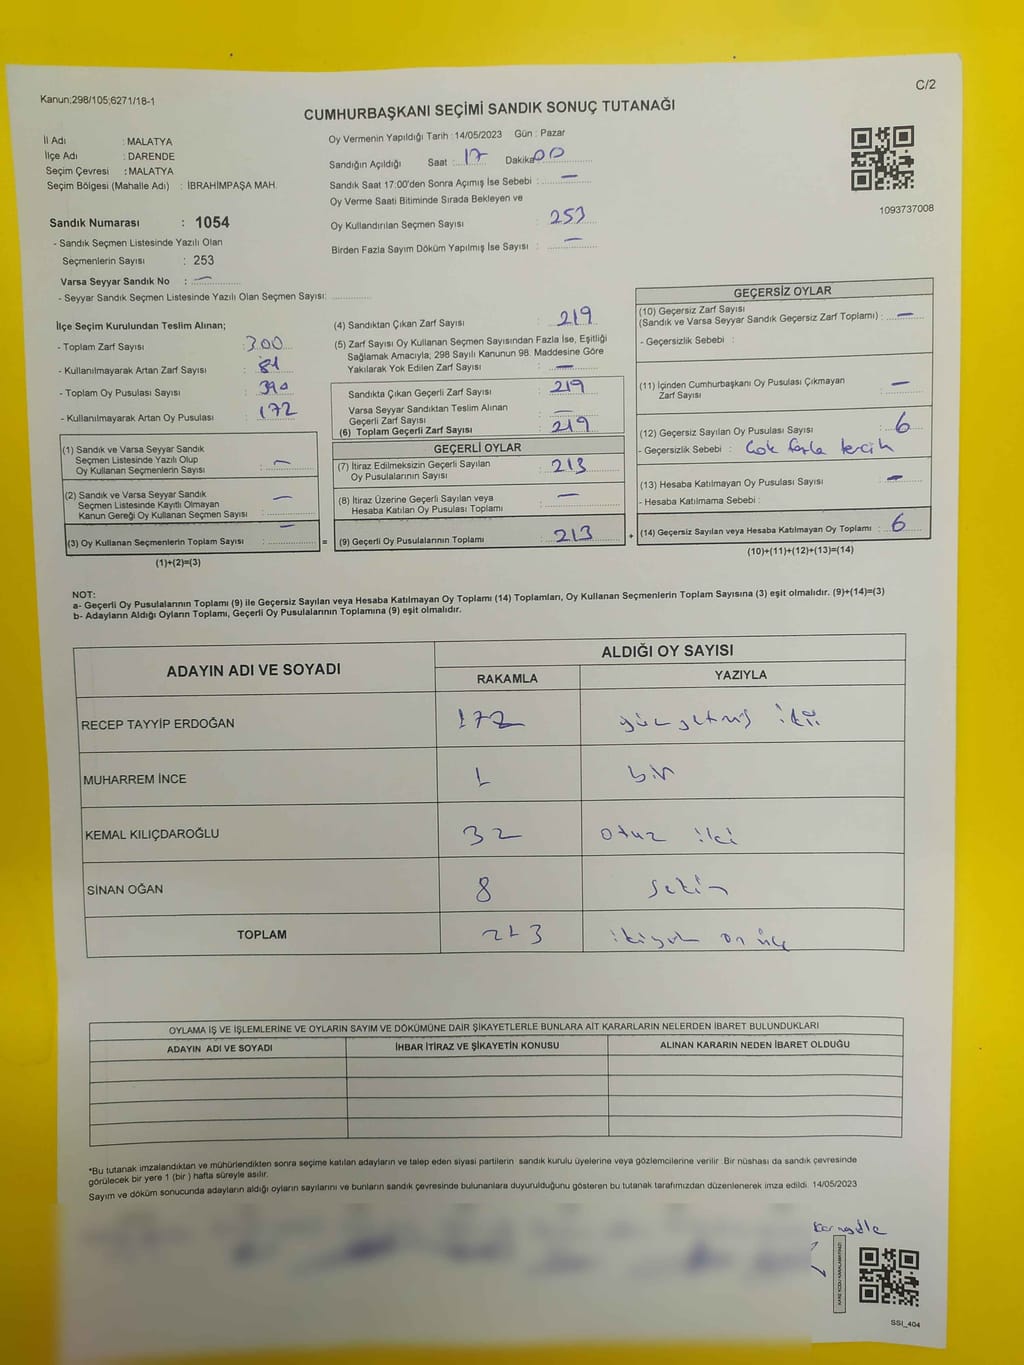 Kanun;298/105;6271/18-1
C/2
CUMHURBAŞKANI SEÇİMİ SANDIK SONUÇ TUTANAĞI
İl Adı : MALATYA
İlçe Adı : DARENDE
Seçim Çevresi : MALATYA
Seçim Bölgesi (Mahalle Adı) : İBRAHİMPAŞA MAH.
Oy Vermenin Yapıldığı Tarih : 14/05/2023 Gün : Pazar
Sandığın Açıldığı Saat : 17 Dakika 00
Sandık Saat 17:00'den Sonra Açımış İse Sebebi : —
Oy Verme Saati Bitiminde Sırada Bekleyen ve
Oy Kullandırılan Seçmen Sayısı : 253
Birden Fazla Sayım Döküm Yapılmış İse Sayısı : —
1093737008
Sandık Numarası : 1054
- Sandık Seçmen Listesinde Yazılı Olan
Seçmenlerin Sayısı : 253
Varsa Seyyar Sandık No : —
- Seyyar Sandık Seçmen Listesinde Yazılı Olan Seçmen Sayısı:
İlçe Seçim Kurulundan Teslim Alınan;
- Toplam Zarf Sayısı : 300
- Kullanılmayarak Artan Zarf Sayısı : 81
- Toplam Oy Pusulası Sayısı : 390
- Kullanılmayarak Artan Oy Pusulası : 172
(1) Sandık ve Varsa Seyyar Sandık
Seçmen Listesinde Yazılı Olup
Oy Kullanan Seçmenlerin Sayısı : —
(2) Sandık ve Varsa Seyyar Sandık
Seçmen Listesinde Kayıtlı Olmayan
Kanun Gereği Oy Kullanan Seçmen Sayısı : —
(3) Oy Kullanan Seçmenlerin Toplam Sayısı : — =
(1)+(2)=(3)
(4) Sandıktan Çıkan Zarf Sayısı : 219
(5) Zarf Sayısı Oy Kullanan Seçmen Sayısından Fazla İse, Eşitliği
Sağlamak Amacıyla, 298 Sayılı Kanunun 98. Maddesine Göre
Yakılarak Yok Edilen Zarf Sayısı : —
Sandıkta Çıkan Geçerli Zarf Sayısı : 219
Varsa Seyyar Sandıktan Teslim Alınan
Geçerli Zarf Sayısı : —
(6) Toplam Geçerli Zarf Sayısı : 219
GEÇERLİ OYLAR
(7) İtiraz Edilmeksizin Geçerli Sayılan
Oy Pusulalarının Sayısı : 213
(8) İtiraz Üzerine Geçerli Sayılan veya
Hesaba Katılan Oy Pusulası Toplamı : —
(9) Geçerli Oy Pusulalarının Toplamı : 213 +
GEÇERSİZ OYLAR
(10) Geçersiz Zarf Sayısı
(Sandık ve Varsa Seyyar Sandık Geçersiz Zarf Toplamı) : —
- Geçersizlik Sebebi :
(11) İçinden Cumhurbaşkanı Oy Pusulası Çıkmayan
Zarf Sayısı : —
(12) Geçersiz Sayılan Oy Pusulası Sayısı : 6
- Geçersizlik Sebebi : Çok fazla tercih
(13) Hesaba Katılmayan Oy Pusulası Sayısı : —
- Hesaba Katılmama Sebebi :
(14) Geçersiz Sayılan veya Hesaba Katılmayan Oy Toplamı : 6
(10)+(11)+(12)+(13)=(14)
NOT:
a- Geçerli Oy Pusulalarının Toplamı (9) ile Geçersiz Sayılan veya Hesaba Katılmayan Oy Toplamı (14) Toplamları, Oy Kullanan Seçmenlerin Toplam Sayısına (3) eşit olmalıdır. (9)+(14)=(3)
b- Adayların Aldığı Oyların Toplamı, Geçerli Oy Pusulalarının Toplamına (9) eşit olmalıdır.
ADAYIN ADI VE SOYADI
ALDIĞI OY SAYISI
RAKAMLA YAZIYLA
RECEP TAYYİP ERDOĞAN 172 yüz yetmiş iki
MUHARREM İNCE 1 bir
KEMAL KILIÇDAROĞLU 32 otuz iki
SİNAN OĞAN 8 sekiz
TOPLAM 213 ikiyüz on üç
OYLAMA İŞ VE İŞLEMLERİNE VE OYLARIN SAYIM VE DÖKÜMÜNE DAİR ŞİKAYETLERLE BUNLARA AİT KARARLARIN NELERDEN İBARET BULUNDUKLARI
ADAYIN ADI VE SOYADI İHBAR İTİRAZ VE ŞİKAYETİN KONUSU ALINAN KARARIN NEDEN İBARET OLDUĞU
*Bu tutanak imzalandıktan ve mühürlendikten sonra seçime katılan adayların ve talep eden siyasi partilerin sandık kurulu üyelerine veya gözlemcilerine verilir. Bir nüshası da sandık çevresinde
görülecek bir yere 1 (bir ) hafta süreyle asılır.
Sayım ve döküm sonucunda adayların aldığı oyların sayılarını ve bunların sandık çevresinde bulunanlara duyurulduğunu gösteren bu tutanak tarafımızdan düzenlenerek imza edildi. 14/05/2023
SSI_404